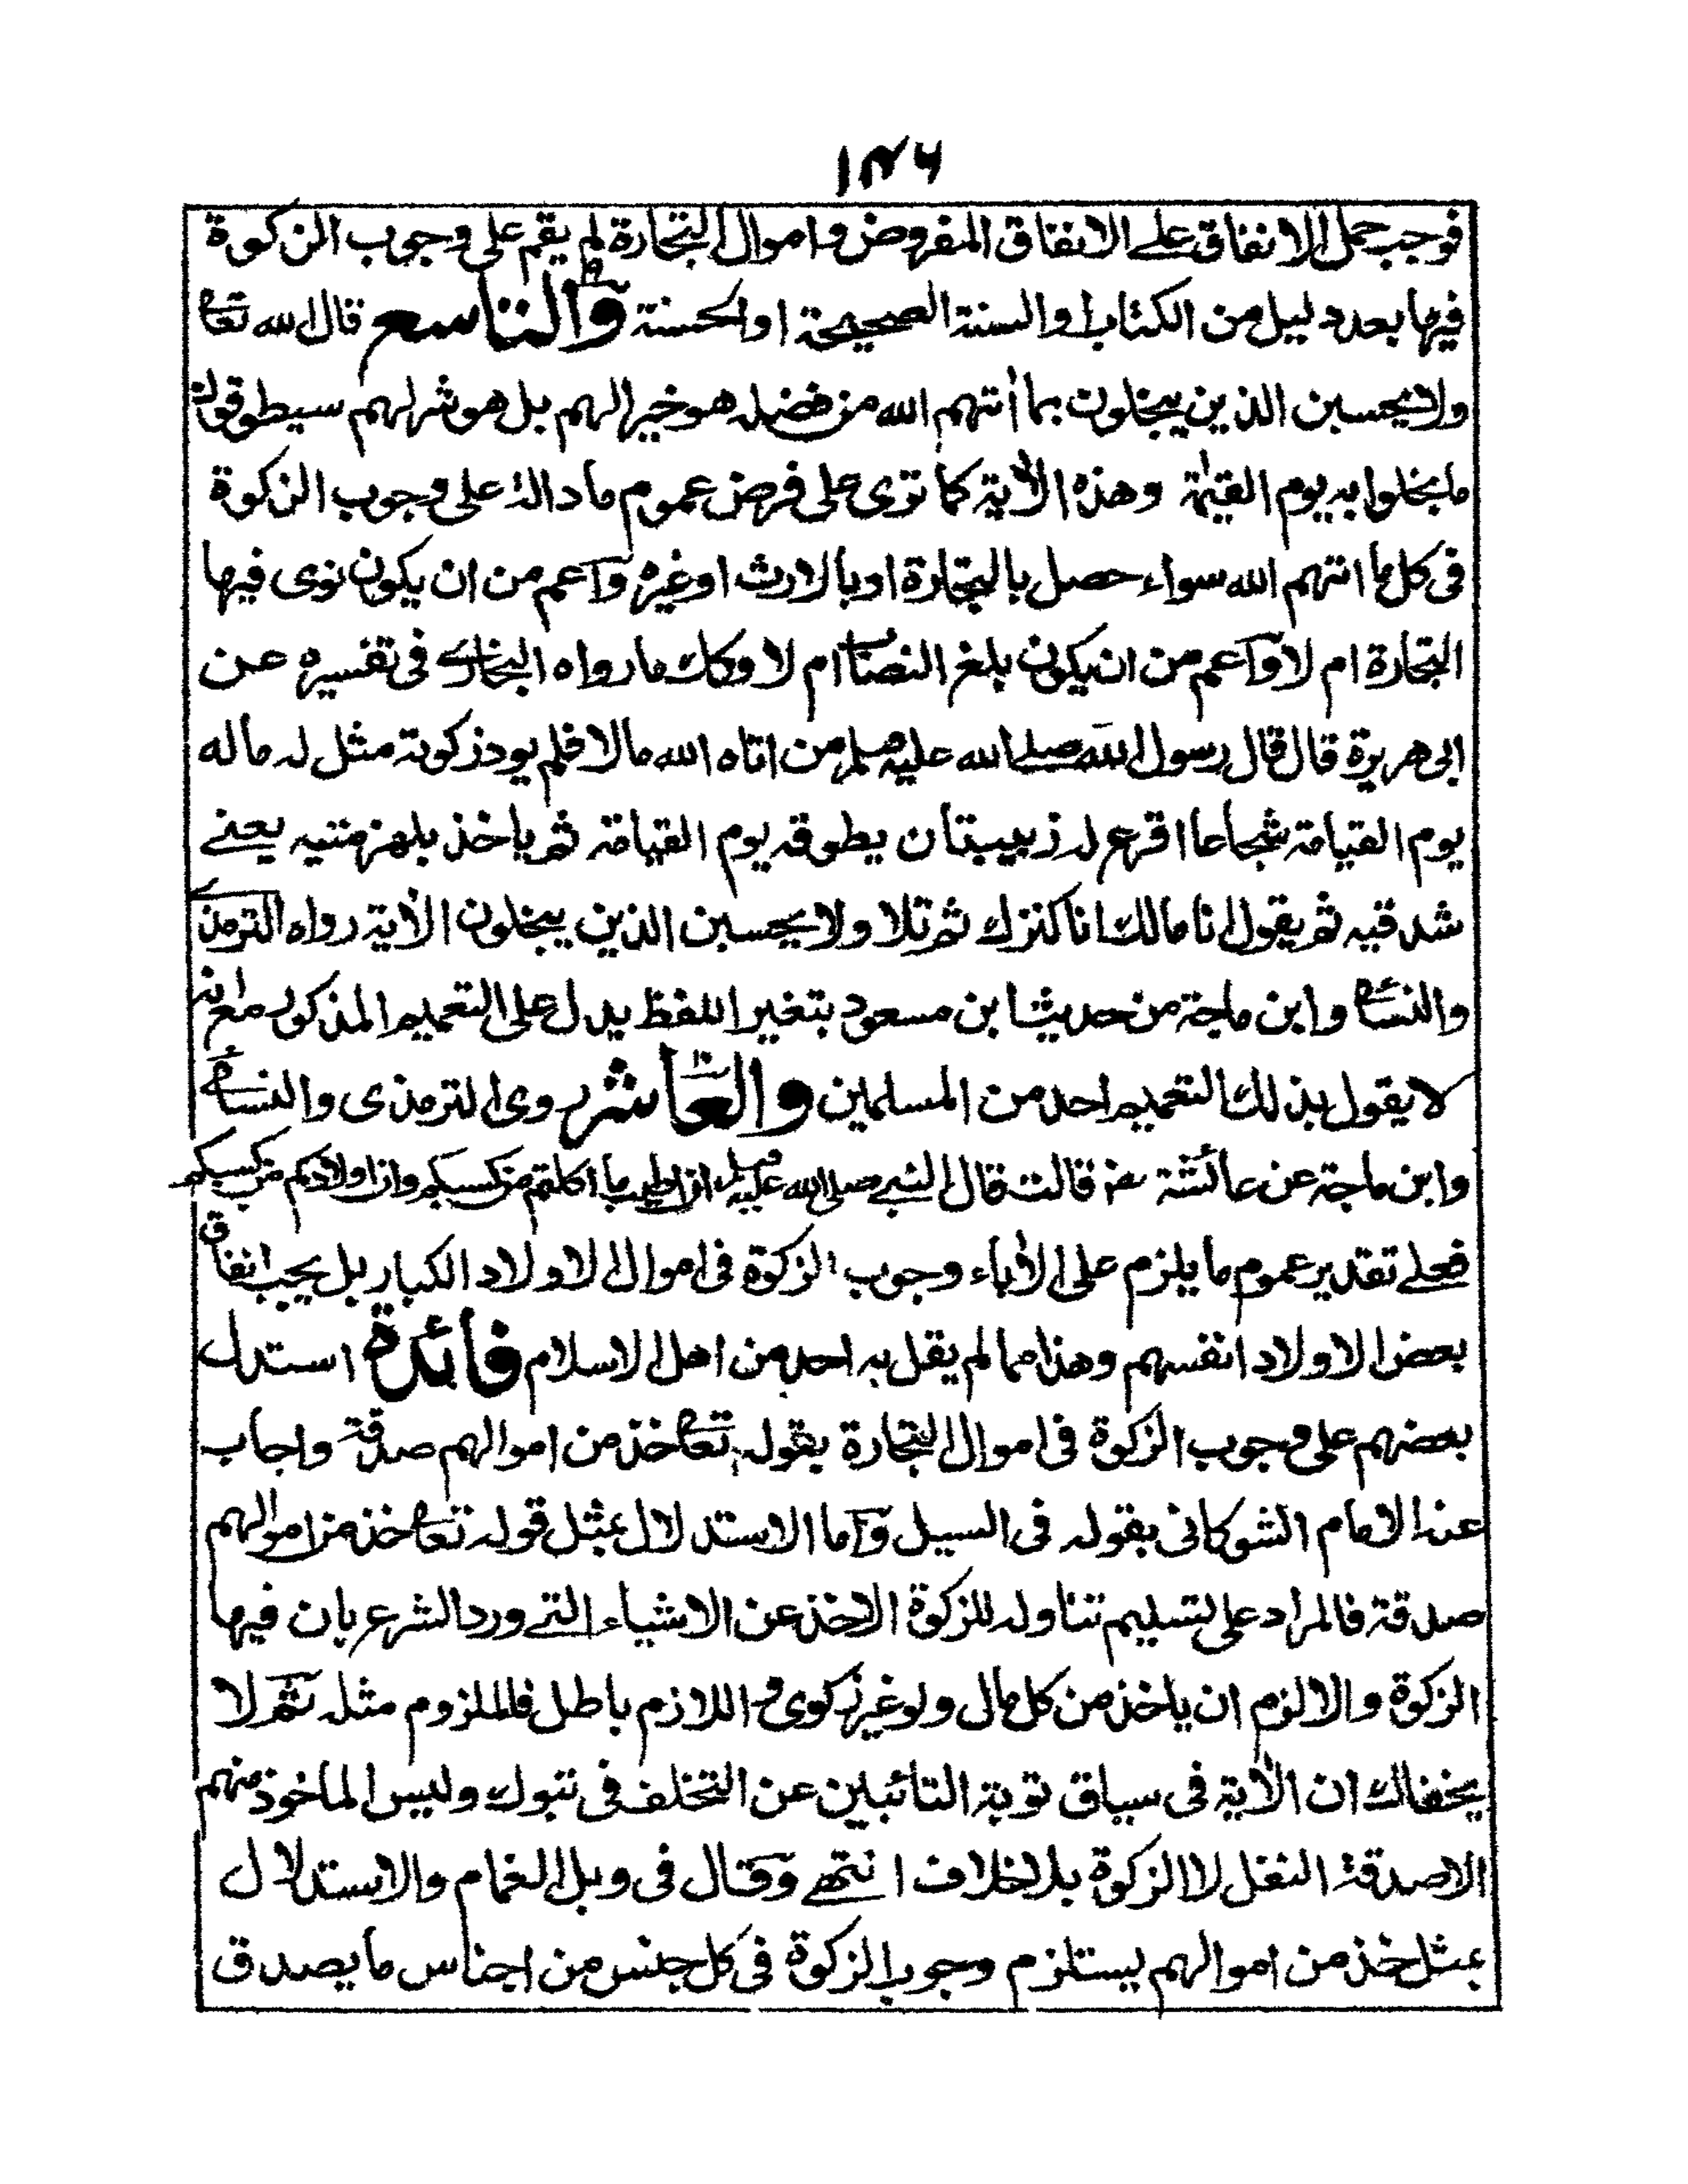 ١٣٦
فوجب حمل الانفاق علے الانفاق المفروض و اموال التجارة لم يقم على وجوب الزكوة
فيها بعد دليل من الكتاب او السنة الصحيحة او الحسنة والتاسع قال الله تعا
ولا يحسبن الذين يبخلون بما اٰتهم الله من فضله هو خيرا لهم بل هو شر لهم سيطوقون
ما بخلوا به يوم القيٰمة وهذه الاٰية كما ترى على فرض عموم ما دالة على وجوب الزكوة
فى كل ما اتهم الله سواء حصل بالتجارة او بالارث او غيره واعم من ان يكون نوى فيها
التجارة ام لا واعم من ان يكون بلغ النصاب ام لا وكك ما رواه البخارے فى تفسيره عن
ابى هريرة قال قال رسول الله صلے الله عليه وسلم من اتاه الله مالا فلم يود زكوته مثل له ماله
يوم القيامة شجاعا اقرع له زبيبتان يطوقه يوم القيامة ثم ياخذ بلهزمتيه يعنے
شدقيه ثم يقول انا مالك انا كنزك ثم تلا ولا يحسبن الذين يبخلون الاٰية رواه الترمذے
والنسائے وابن ماجة من حديث ابن مسعود بتغير اللفظ يدل على التعميم المذكور مع انه
لا يقول بذلك التعميم احد من المسلمين والعاشر روى الترمذى والنسائے
وابن ماجة عن عائشة رضـ قالت قال النبے صلى الله عليه وسلم ان اطيب ما اكلتم من كسبكم وان اولادكم من كسبكم
فعلے تقدير عموم ما يلزم على الاٰباء وجوب الزكوة فى اموال الاولاد الكبار بل يجب انفاق
بعض الاولاد انفسهم وهذا مما لم يقل به احد من اهل الاسلام فائدة استدل
بعضهم على وجوب الزكوة فى اموال التجارة بقوله تعا خذ من اموالهم صدقة واجاب
عنه الامام الشوكانى بقوله فى السيل واما الاستدلال بمثل قوله تعا خذ من اموالهم
صدقة فالمراد على تسليم تناوله للزكوة الاخذ عن الاشياء التے ورد الشرع بان فيها
الزكوة والا لزم ان ياخذ من كل مال ولو غير زكوى و اللازم باطل فالملزوم مثله ثم لا
يخفاك ان الاٰية فى سياق توبة التائبين عن التخلف فى تبوك وليس الماخوذ منهم
الا صدقة النفل لا الزكوة بلا خلاف انتهے وقال فى وبل الغمام والاستدلال
بمثل خذ من اموالهم يستلزم وجوب الزكوة فى كل جنس من اجناس ما يصدق